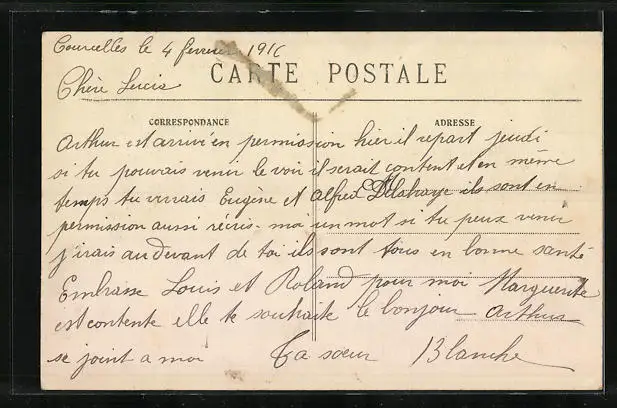 Courcelles le 4 fevrier 1916
CARTE POSTALE
Chère Lucia
CORRESPONDANCE
ADRESSE
Arthur est arrivé en permission hier il repart jeudi
si tu pouvais venir le voir il serait content et en même
temps tu verrais Eugène et Alfred Delahaye ils sont en
permission aussi récris-moi un mot si tu peux venir
j'irais au devant de toi ils sont tous en bonne santé
Embrasse Louis et Roland pour moi Marguerite
est contente elle te souhaite le bonjour Arthur
se joint a moi Ta sœur Blanche